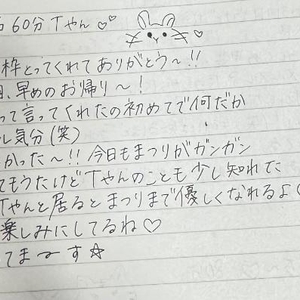 60分Tやん♡♡
枠とってくれてありがとう〜!!
、早めのお帰り〜!
って言ってくれたの初めてで何だか
し気分(笑)
かった〜!!今日もまつりがガンガン
てもうたけどTやんのことも少し知れた
Tやんと居るとまつりまで優しくなれるよ
楽しみにしてるね♡
てまーす☆